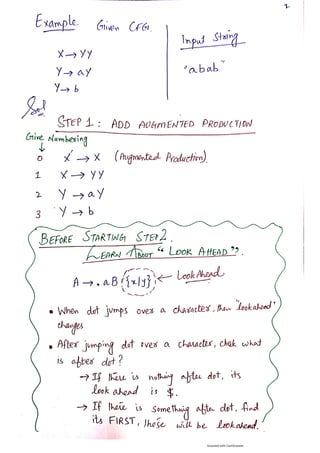 2
Example Given CFG.
Input String
X → YY
"abab"
Y → aY
Y → b
Sol
STEP 1: ADD AUGMENTED PRODUCTION
Give Numbering
0 X' → X (Augmented Production).
1 X → YY
2 Y → aY
3 Y → b
BEFORE STARTING STEP 2.
LEARN ABOUT "LOOK AHEAD".
A → .aB, {x|y} ← LookAhead
• When dot jumps over a character, then "lookahead"
changes
• After jumping dot over a character, chek what
is after dot?
→ If there is nothing after dot, its
look ahead is $.
→ If there is something after dot, find
its FIRST, those will be lookahead.
Scanned with CamScanner